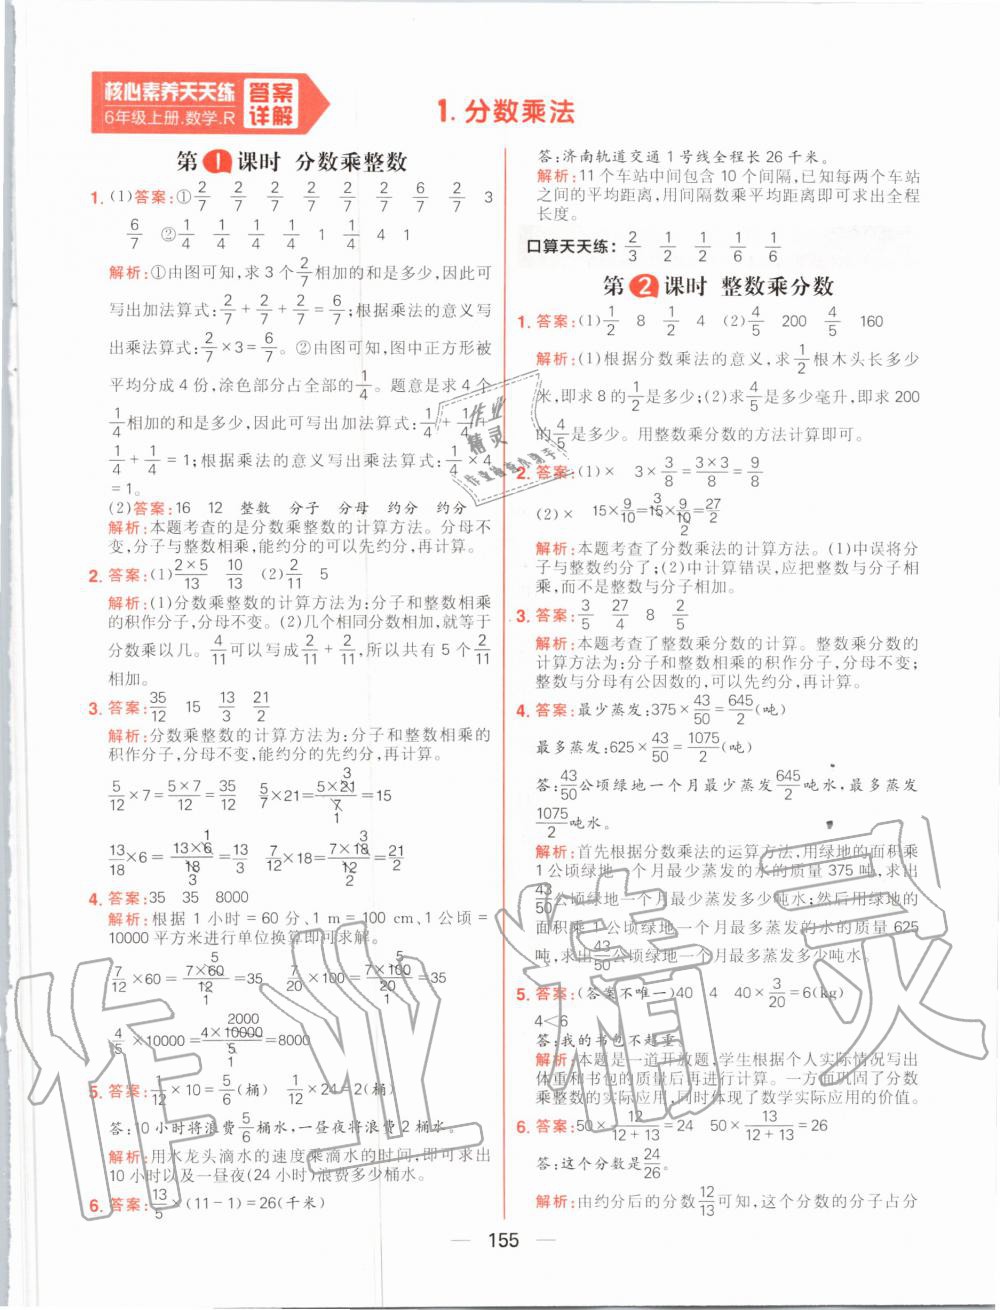 核心素养天天练
6年级上册.数学.R
答案
详解
1.分数乘法
第1课时 分数乘整数
1.(1)答案:①2/7 2/7 2/7 2/7 2/7 6/7 2/7 3
6/7 ②1/4 1/4 1/4 1/4 1 1/4 4 1
解析:①由图可知,求3个2/7相加的和是多少,因此可
写出加法算式:2/7+2/7+2/7=6/7;根据乘法的意义写
出乘法算式:2/7×3=6/7。②由图可知,图中正方形被
平均分成4份,涂色部分占全部的1/4。题意是求4个
1/4相加的和是多少,因此可写出加法算式:1/4+1/4+
1/4+1/4=1;根据乘法的意义写出乘法算式:1/4×4
=1。
(2)答案:16 12 整数 分子 分母 约分 约分
解析:本题考查的是分数乘整数的计算方法。分母不
变,分子与整数相乘,能约分的可以先约分,再计算。
2.答案:(1)2×5/13 10/13 (2)2/11 5
解析:(1)分数乘整数的计算方法为:分子和整数相乘
的积作分子,分母不变。(2)几个相同分数相加,就等于
分数乘以几。4/11可以写成2/11+2/11,所以共有5个2/11
相加。
3.答案:35/12 15 13/3 21/2
解析:分数乘整数的计算方法为:分子和整数相乘的
积作分子,分母不变,能约分的先约分,再计算。
5/12×7=5×7/12=35/12 5/7×21=5×21/7=15
3
1
13/18×6=13×6/18=13/3 7/12×18=7×18/12=21/2
1
3
3
2
4.答案:35 35 8000
解析:根据1小时=60分、1 m=100 cm、1公顷=
10000平方米进行单位换算即可求解。
7/12×60=7×60/12=35 7/20×100=7×100/20=35
5
1
5
1
4/5×10000=4×10000/5=8000
2000
1
5.答案:1/12×10=5/6(桶) 1/12×24=2(桶)
答:10小时将浪费5/6桶水,一昼夜将浪费2桶水。
解析:用水龙头滴水的速度乘滴水的时间,即可求出
10小时以及一昼夜(24小时)浪费多少桶水。
6.答案:13/5×(11-1)=26(千米)
答:济南轨道交通1号线全程长26千米。
解析:11个车站中间包含10个间隔,已知每两个车站
之间的平均距离,用间隔数乘平均距离即可求出全程
长度。
口算天天练:2/3 1/2 1/2 1/6 1/6
第2课时 整数乘分数
1.答案:(1)1/2 8 1/2 4 (2)4/5 200 4/5 160
解析:(1)根据分数乘法的意义,求1/2根木头长多少
米,即求8的1/2是多少;(2)求4/5是多少毫升,即求200
的4/5是多少。用整数乘分数的方法计算即可。
2.答案:(1)× 3×3/8=3×3/8=9/8
(2)× 15×9/10=15×9/10=27/2
3
2
解析:本题考查了分数乘法的计算方法。(1)中误将分
子与整数约分了;(2)中计算错误,应把整数与分子相
乘,而不是整数与分子相加。
3.答案:3/5 27/4 8 2/5
解析:本题考查了整数乘分数的计算。整数乘分数的
计算方法为:分子和整数相乘的积作分子,分母不变;
整数与分母有公因数的,可以先约分,再计算。
4.答案:最少蒸发:375×43/50=645/2(吨)
最多蒸发:625×43/50=1075/2(吨)
答:43/50公顷绿地一个月最少蒸发645/2吨水,最多蒸发
1075/2吨水。
解析:首先根据分数乘法的运算方法,用绿地的面积乘
1公顷绿地一个月最少蒸发的水的质量375吨,求出
43/50公顷绿地一个月最少蒸发多少吨水;然后用绿地的
面积乘1公顷绿地一个月最多蒸发的水的质量625
吨,求出43/50公顷绿地一个月最多蒸发多少吨水。
5.答案:(答案不唯一)40 4 40×3/20=6(kg)
4<6
答:我的书包不超重。
解析:本题是一道开放题,学生根据个人实际情况写出
体重和书包的质量后再进行计算。一方面巩固了分数
乘整数的实际应用,同时体现了数学实际应用的价值。
6.答案:50×12/12+13=24 50×13/12+13=26
答:这个分数是24/26。
解析:由约分后的分数12/13可知,这个分数的分子占分
155
作业
精灵
作业精灵